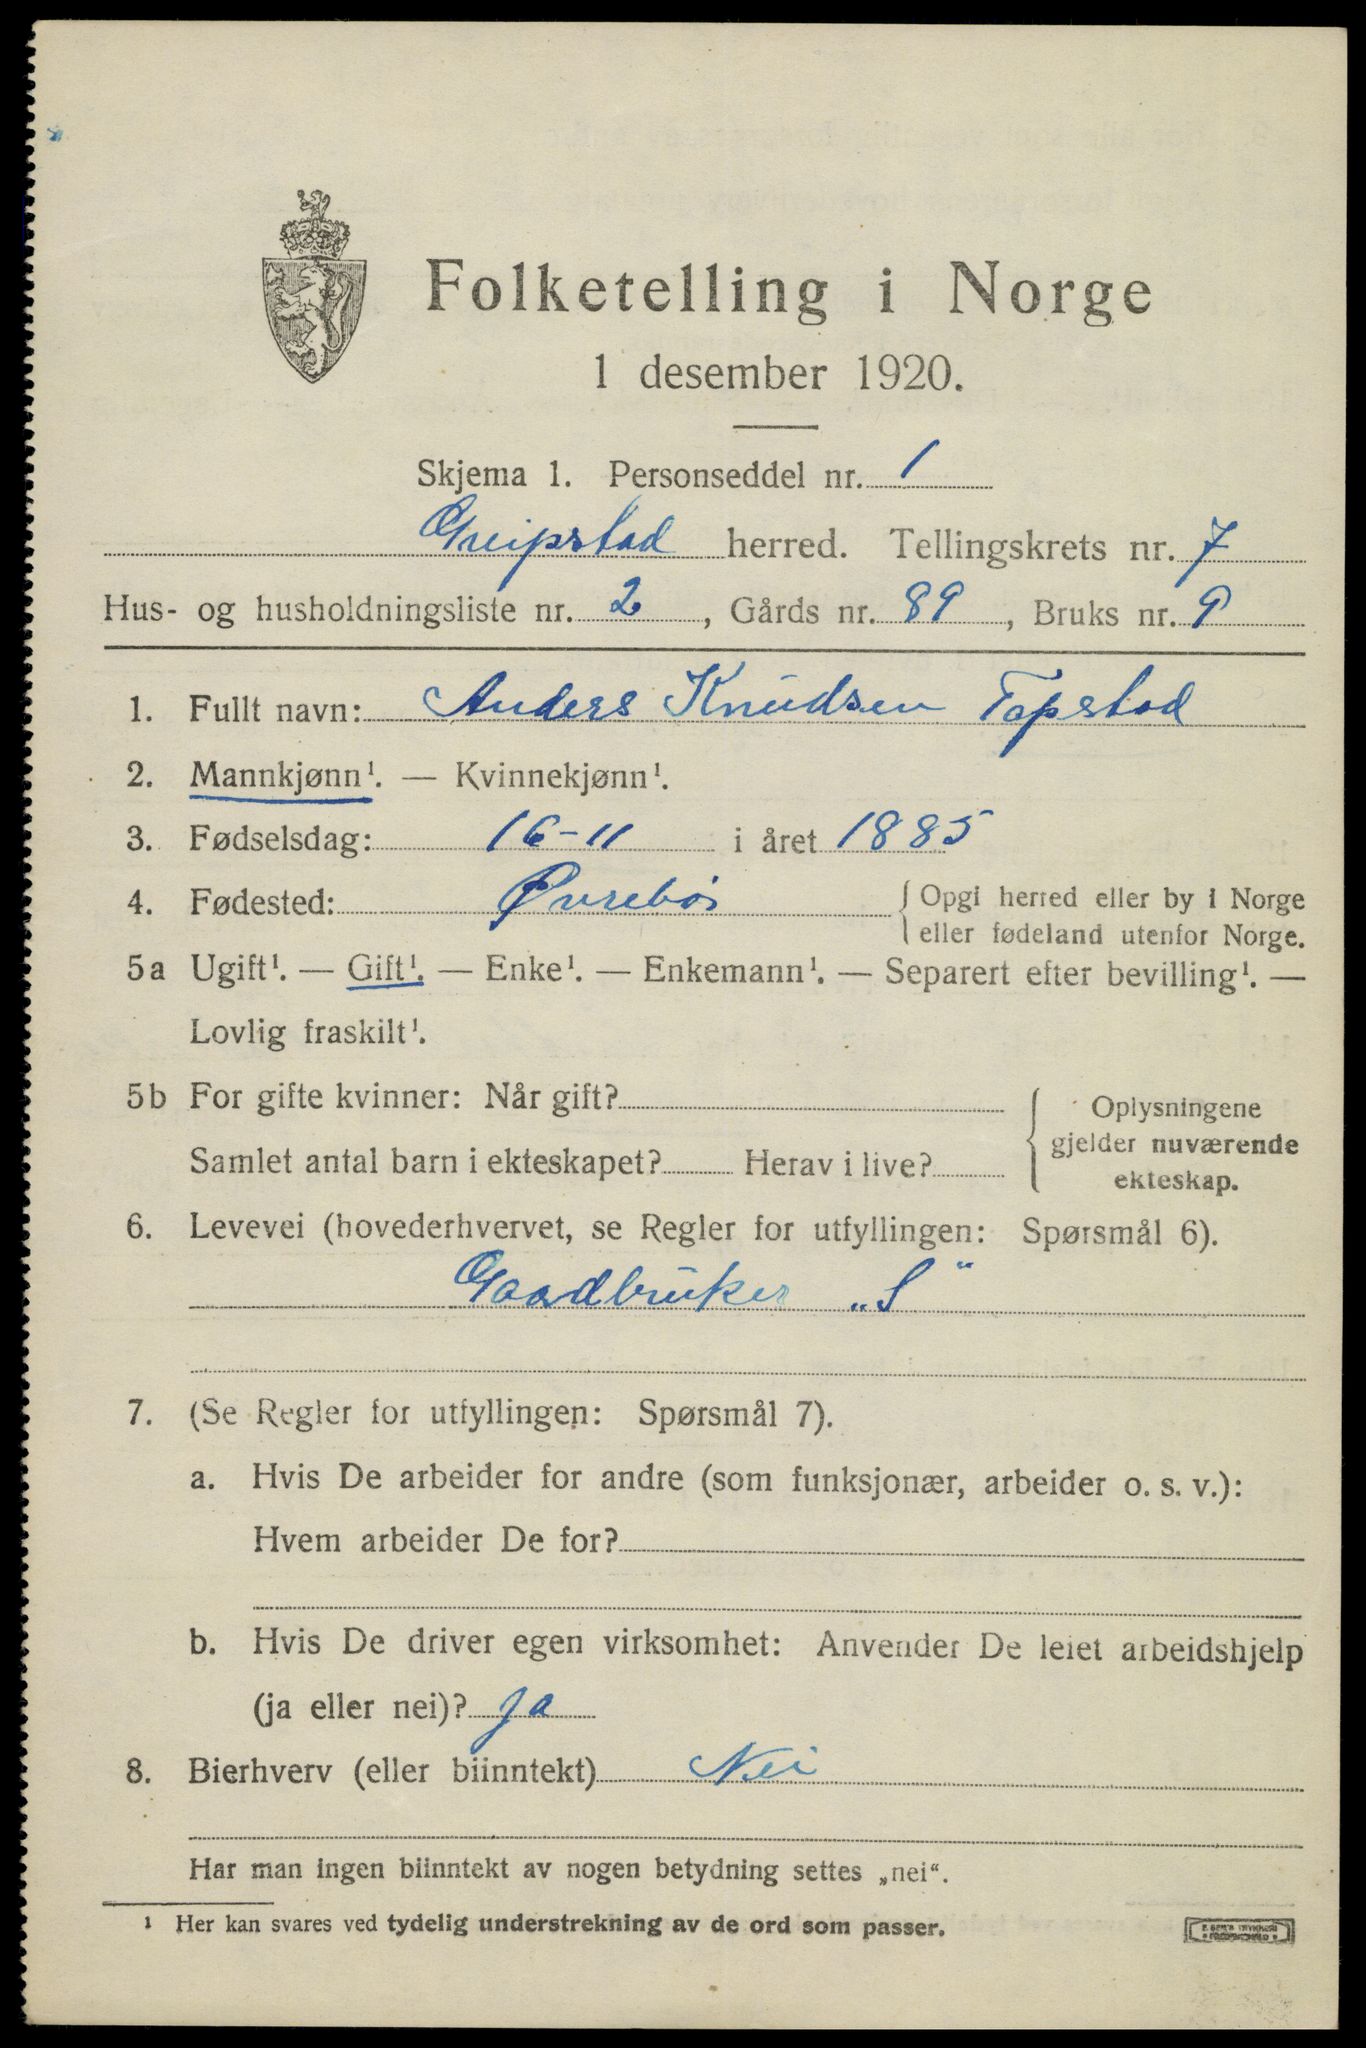 Folketelling i Norge
1 desember 1920.
Skjema 1. Personseddel nr. 1
Greipstad herred. Tellingskrets nr. 7
Hus- og husholdningsliste nr. 2, Gårds nr. 89, Bruks nr. 9
1. Fullt navn: Anders Knudsen Topstad
2. Mannkjønn¹. — Kvinnekjønn¹.
3. Fødselsdag: 16-11 i året 1885
4. Fødested: Øvrebø { Opgi herred eller by i Norge
eller fødeland utenfor Norge.
5a Ugift¹. — Gift¹. — Enke¹. — Enkemann¹. — Separert efter bevilling¹. —
Lovlig fraskilt¹.
5b For gifte kvinner: Når gift?
Samlet antal barn i ekteskapet? Herav i live?
Oplysningene
gjelder nuværende
ekteskap.
6. Levevei (hovederhvervet, se Regler for utfyllingen: Spørsmål 6).
Gaardbruker „S“
7. (Se Regler for utfyllingen: Spørsmål 7).
a. Hvis De arbeider for andre (som funksjonær, arbeider o. s. v.):
Hvem arbeider De for?
b. Hvis De driver egen virksomhet: Anvender De leiet arbeidshjelp
(ja eller nei)? ja
8. Bierhverv (eller biinntekt) Nei
Har man ingen biinntekt av nogen betydning settes „nei“.
¹ Her kan svares ved tydelig understrekning av de ord som passer.